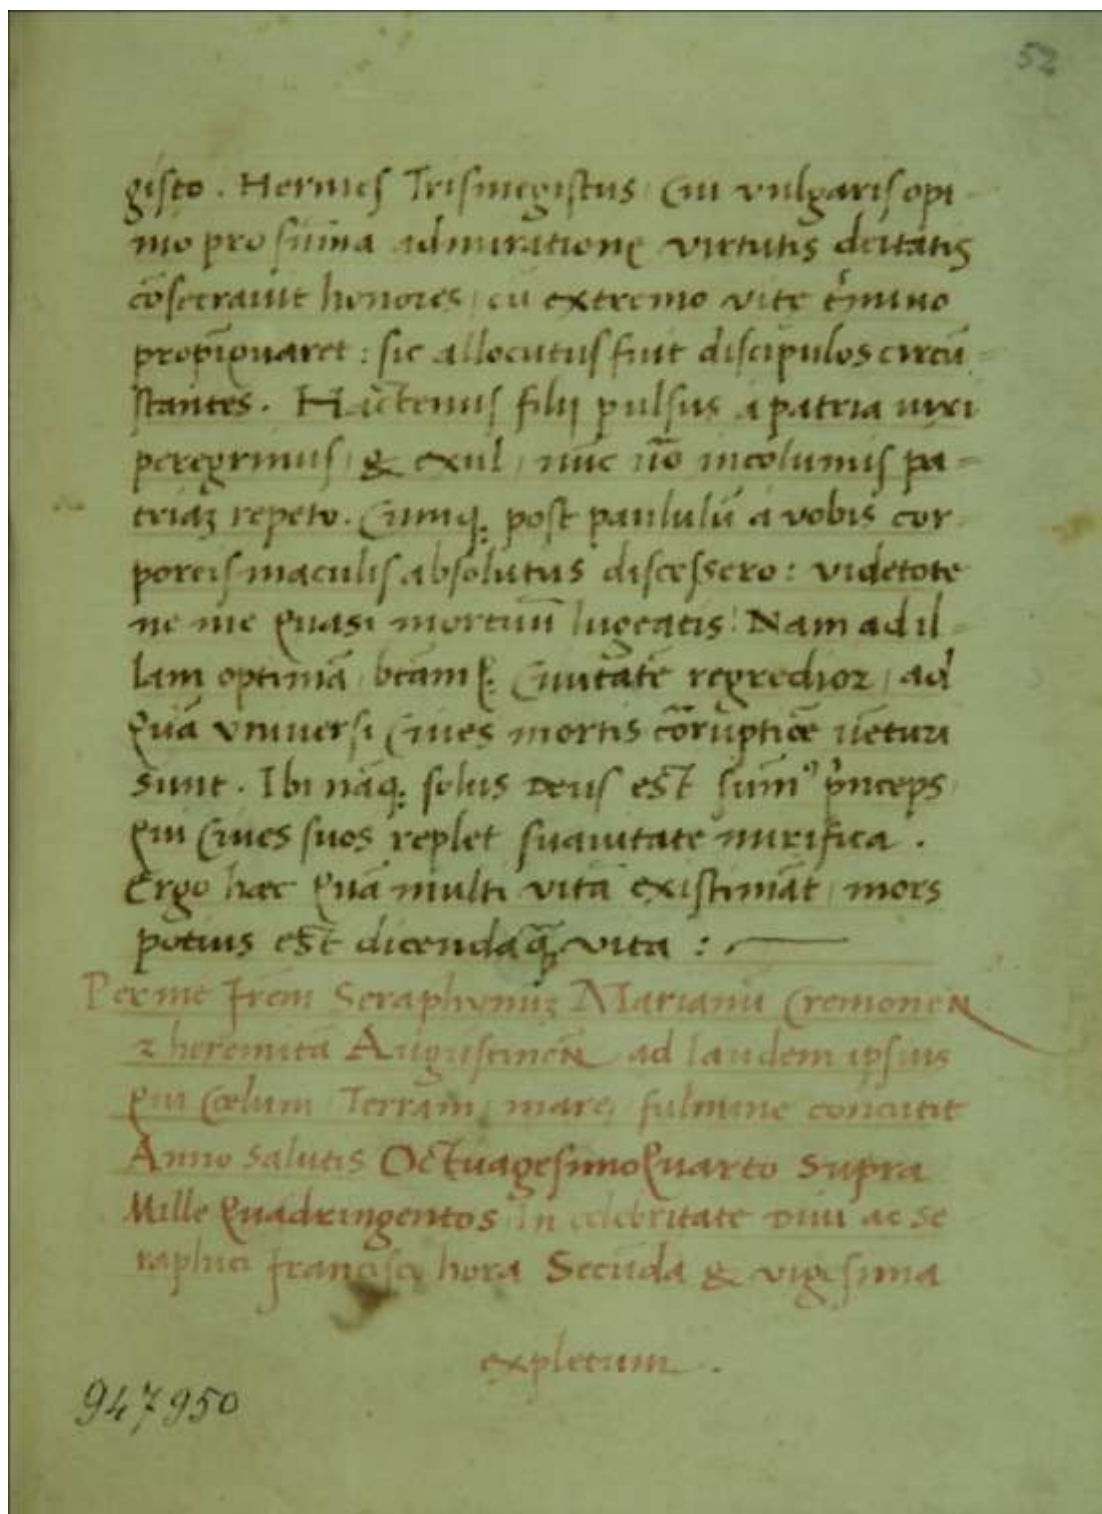 52
giſto. Hermeſ Triſmegiſtus, Cui vulgariſ opi-
nio pro ſum̄a admiratione virtutis deitatis
cōſecrauit honores, cū extremo vite t̓mino
propīquaret: ſic allocutuſ fuit diſcipulos circū=
ſtantes. Hactenuſ filij pulſus a patria uixi
peregrinuſ, & exul, nūc ūo incolumiſ pa=
triaʒ repeto. Cumqꝫ post paululū a vobis cor-
poreiſ maculiſ abſolutus diſceſſero: videtote
ne me quasi mortuū lugeatis: Nam ad il=
lam optimā, btāmqꝫ Ciuitatē regredior, ad
quā vniuerſi Ciues mortis corruptiōe uēturi
sunt. Ibi nāqꝫ ſolus Deuſ est ſum̄ꝰ p̓nceps,
qui Ciues ſuos replet ſuauitate mirifica.
Ergo haec quā multi vitā exiſtimāt, mors
potius est dicenda q̄ꝫ vita:
Per me frem̄ Seraphynuʒ Marianū CremoneN
ꝛ heremitā AugustineN̄ ad laudem ipſius
qui Cœlum, Terram, mare, fulmine concutit
Anno Salutis Octuageſimo Quarto Supra
Mille Quadringentos In celebritate Diui ac Se
raphici Franciſci hora Secūda & vigeſima
expletum.
947950